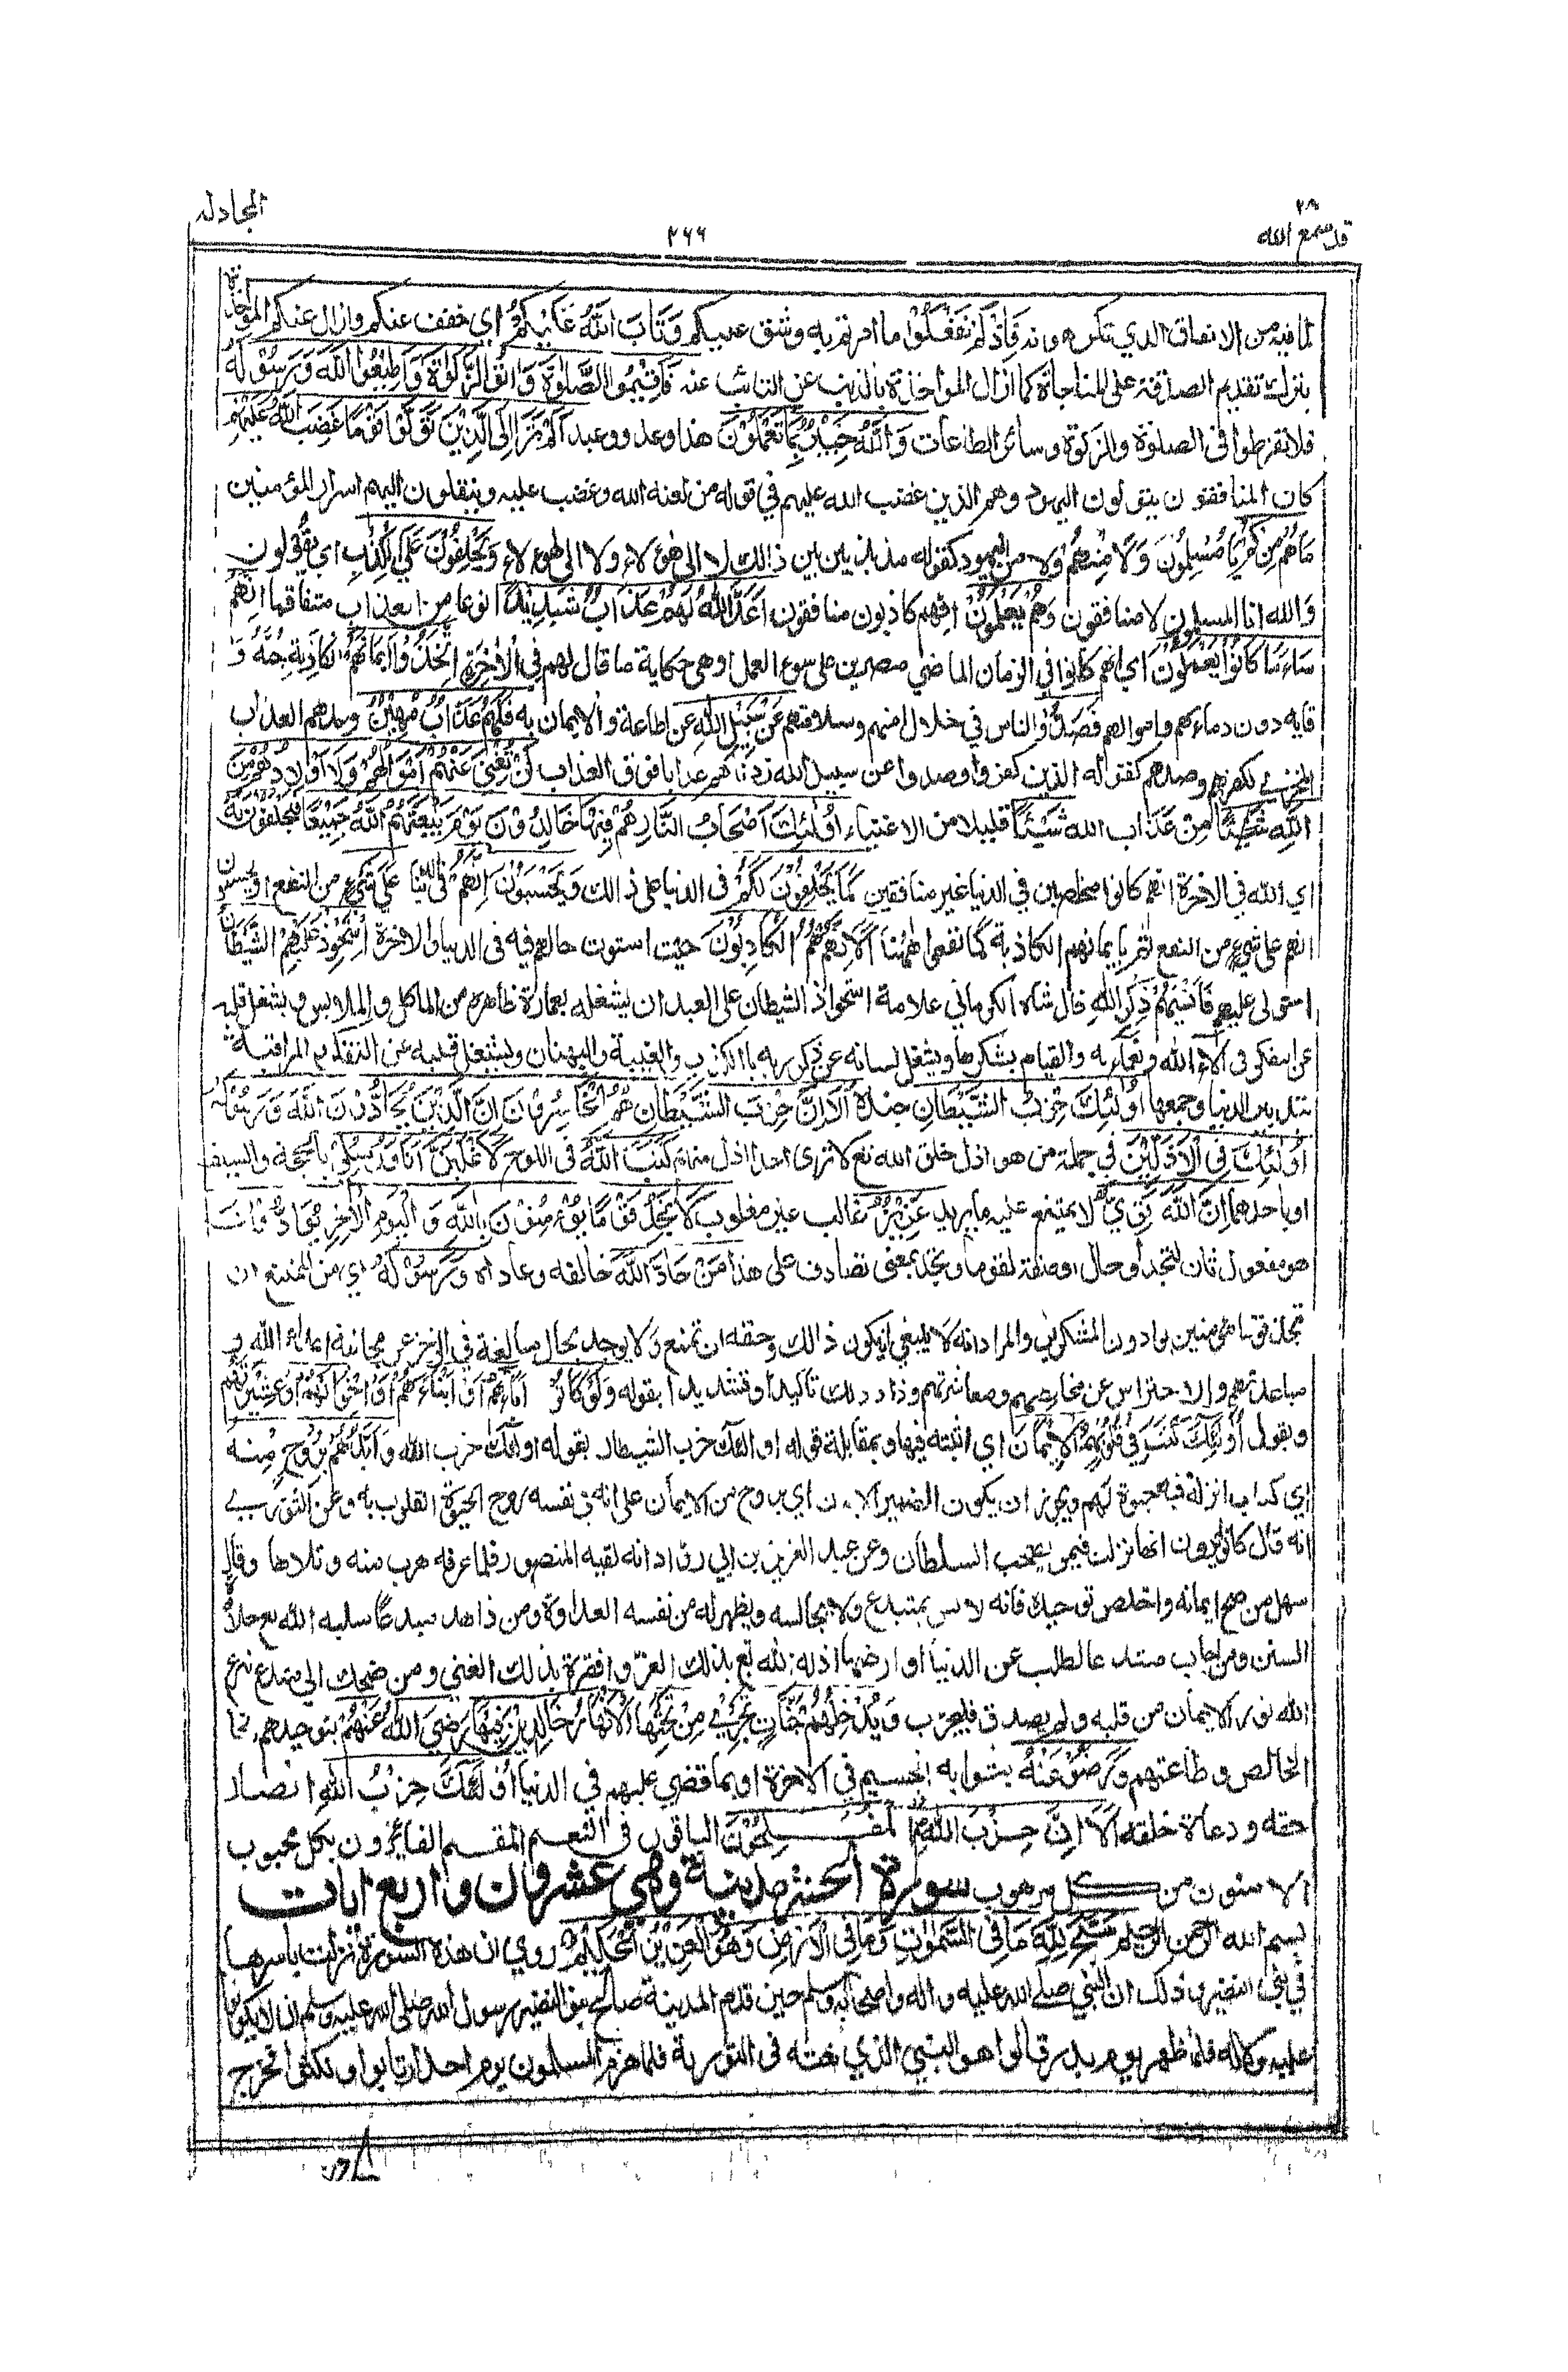 المجادلة
٢٨
قد سمع الله
٢٦٦
لما فيه من الانفاق الذي تكرهونه فَإِذْ لَمْ تَفْعَلُوْا ما امرتم به وشق عليكم وَتَابَ اللهُ عَلَيْكُمْ اي خفف عنكم وازال عنكم المؤاخذة
بترك تقديم الصدقة على المناجاة كما ازال المؤاخذة بالذنب عن التائب عنه فَاَقِيْمُوا الصَّلٰوةَ وَاٰتُوا الزَّكٰوةَ وَاَطِيْعُوا اللهَ وَرَسُوْلَهُ
فلا تفرطوا في الصلوة والزكوة وسائر الطاعات وَاللهُ خَبِيْرٌ بِمَا تَعْمَلُوْنَ هذا وعد ووعيد اَلَمْ تَرَ اِلَى الَّذِيْنَ تَوَلَّوْا قَوْمًا غَضِبَ اللهُ عَلَيْهِمْ
كان المنافقون يتولون اليهود وهم الذين غضب الله عليهم في قوله من لعنه الله وغضب عليه وينقلون اليهم اسرار المؤمنين
مَاهُمْ مِنْكُمْ يا مُسْلِمُوْنَ وَلَا مِنْهُمْ ولا من اليهود كقوله مذبذبين بين ذالك لا الى هؤلاء ولا الى هؤلاء وَيَحْلِفُوْنَ عَلَى الْكَذِبِ اي يقولون
وَالله انا المسلمون لا منافقون وَهُمْ يَعْلَمُوْنَ انهم كاذبون منافقون اَعَدَّ اللهُ لَهُمْ عَذَابًا شَدِيْدًا نوعا من العذاب متفاقما اِنَّهُمْ
سَاءَ مَا كَانُوْا يَعْمَلُوْنَ اي انهم كانوا في الزمان الماضي مصرين على سوء العمل او هي حكاية ما قال لهم في الاخرة اِتَّخَذُوْا اَيْمَانَهُمْ الكاذبة جُنَّةً وَ
قاية دون دماءهم واموالهم فَصَدُّوْا الناس في خلال امنهم وسلامتهم عَنْ سَبِيْلِ اللهِ عن اطاعة والايمان به فَلَهُمْ عَذَابٌ مُهِيْنٌ وعدهم العذاب
المخزي لكفرهم وصدهم كقوله الذين كفروا وصدوا عن سبيل الله زدناهم عذابا فوق العذاب لَنْ تُغْنِيَ عَنْهُمْ اَمْوَالُهُمْ وَلَا اَوْلَادُهُمْ مِنَ
اللهِ شَيْئًا مِنْ عَذَاب الله شَيْئًا قليلا من الاغنياء اُولٰئِكَ اَصْحَابُ النَّارِ هُمْ فِيْهَا خَالِدُوْنَ يَوْمَ يَبْعَثُهُمُ اللهُ جَمِيْعًا فَيَحْلِفُوْنَ لَهُ
اي الله في الاخرة انهم كانوا مخلصين في الدنيا غير منافقين كَمَا يَحْلِفُوْنَ لَكُمْ في الدنيا على ذالك وَيَحْسَبُوْنَ اَنَّهُمْ في الدنيا عَلٰى شَيْءٍ من النفع او يحسبون
انهم على شيء من النفع ثم بايمانهم الكاذبة كما نفعهم ههنا اَلَا اِنَّهُمْ هُمُ الْكَاذِبُوْنَ حيث استوت حالهم فيه في الدنيا والاخرة اِسْتَحْوَذَ عَلَيْهِمُ الشَّيْطَانُ
استولى عليهم فَاَنْسٰهُمْ ذِكْرَ اللهِ قال شاه الكرماني علامة استحواذ الشيطان على العبد ان يشغله بعمارة ظاهره من الماكل والملابس ويشغل قلبه
عن التفكر في آلاء الله ونعمائه والقيام بشكرها ويشغل لسانه عن ذكر ربه بالكذب والغيبة والبهتان ويشغل قلبه عن التفكر والمراقبة
بتدبير الدنيا وجمعها اُولٰئِكَ حِزْبُ الشَّيْطَانِ جنده اَلَا اِنَّ حِزْبَ الشَّيْطَانِ هُمُ الْخَاسِرُوْنَ اِنَّ الَّذِيْنَ يُحَادُّوْنَ اللهَ وَرَسُوْلَهُ
اُولٰئِكَ فِي الْاَذَلِّيْنَ في جملة من هو اذل خلق الله تع لا ترى احدا اذل منهم كَتَبَ اللهُ في اللوح لَاَغْلِبَنَّ اَنَا وَرُسُلِيْ بالحجة والسيف
او باحدهما اِنَّ اللهَ قَوِيٌّ لا يمتنع عليه ما يريد عَزِيْزٌ غالب غير مغلوب لَا تَجِدُ قَوْمًا يُؤْمِنُوْنَ بِاللهِ وَالْيَوْمِ الْاٰخِرِ يُوَادُّوْنَ
هو مفعول ثان لتجد او حال او صفة لقوما وتجد بمعنى تصادف على هذا مَنْ حَادَّ اللهَ خالفه وعاداه وَرَسُوْلَهُ اي من الممتنع ان
تجد قوما مؤمنين يوادون المشركين والمراد انه لا ينبغي ان يكون ذالك وحقه ان تمتنع ولا يوجد بحال مبالغة في الزجر عن مجانبة اعداء الله و
مباعدتهم والاحتراس عن مخالطتهم ومعاشرتهم وزاد ذلك تأكيدا وتشديدا بقوله وَلَوْ كَانُوْا اٰبَاءَهُمْ اَوْ اَبْنَاءَهُمْ اَوْ اِخْوَانَهُمْ اَوْ عَشِيْرَتَهُمْ
وبقوله اُولٰئِكَ كَتَبَ فِيْ قُلُوْبِهِمُ الْاِيْمَانَ اي اثبته فيها وبمقابلة قوله اولئك حزب الشيطان بقوله اولئك حزب الله وَاَيَّدَهُمْ بِرُوْحٍ مِنْهُ
اي كتاب انزله فيه حيوة لهم ويجوز ان يكون الضمير للايمان اي بروح من الايمان على انه في نفسه روح لحيوة القلوب به وعن الثوري
انه قال كانوا يرون انها نزلت فيمن يصحب السلطان وعن عبد العزيز بن ابي رواد انه لقيه المنصور فلما عرفه هرب منه وتلاها وقال
سهل من صح ايمانه واخلص توحيده فانه لا يانس بمبتدع ولا يجالسه ويظهر له من نفسه العداوة ومن داهن مبتدعا سلبه الله تع حلاوة
السنن ومن اجاب مبتدعا لطلب عز الدنيا او ارضها اذله الله تع بذلك العز وافقره بذلك الغنى ومن ضحك الى مبتدع نزع
الله نور الايمان من قلبه ولم يصدق فليجرب وَيُدْخِلُهُمْ جَنَّاتٍ تَجْرِيْ مِنْ تَحْتِهَا الْاَنْهَارُ خَالِدِيْنَ فِيْهَا رَضِيَ اللهُ عَنْهُمْ بتوحيدهم
الخالص وطاعتهم وَرَضُوْا عَنْهُ بثوابه الجسيم في الاخرة او بما قضى عليهم في الدنيا اُولٰئِكَ حِزْبُ اللهِ انصار
حقه ودعاة خلقه اَلَا اِنَّ حِزْبَ اللهِ هُمُ الْمُفْلِحُوْنَ الباقون في النعيم المقيم الفائزون بكل محبوب
الامنون من كل مرهوب سورة الحشر مدينية وهي عشرون واربع ايات
بسم الله الرحمن الرحيم سَبَّحَ لِلّٰهِ مَا فِي السَّمٰوٰتِ وَمَا فِي الْاَرْضِ وَهُوَ الْعَزِيْزُ الْحَكِيْمُ روي ان هذه السورة نزلت باسرها
في بني النضير وذلك ان النبي صلى الله عليه واله واصحابه وسلم حين قدم المدينة صالح بنو النضير رسول الله صلى الله عليه وسلم ان لا يكونوا
عليه ولا له فلما ظهر يوم بدر قالوا هو النبي الذي نعته في التورية فلما هزم المسلمون يوم احد ارتابوا ونكثوا فخرج